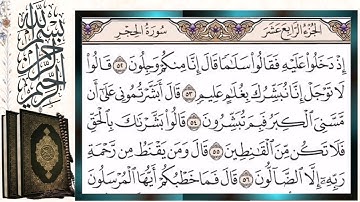 الجُزءُ الرَّابِعَ عَشَرَ
سُورَةُ الحِجْرِ
إِذْ دَخَلُوا۟ عَلَيْهِ فَقَالُوا۟ سَلَـٰمًا قَالَ إِنَّا مِنكُمْ وَجِلُونَ ٥٢ قَالُوا۟
لَا تَوْجَلْ إِنَّا نُبَشِّرُكَ بِغُلَـٰمٍ عَلِيمٍ ٥٣ قَالَ أَبَشَّرْتُمُونِى عَلَىٰٓ أَن
مَّسَّنِىَ ٱلْكِبَرُ فَبِمَ تُبَشِّرُونَ ٥٤ قَالُوا۟ بَشَّرْنَـٰكَ بِٱلْحَقِّ
فَلَا تَكُن مِّنَ ٱلْقَـٰنِطِينَ ٥٥ قَالَ وَمَن يَقْنَطُ مِن رَّحْمَةِ
رَبِّهِۦٓ إِلَّا ٱلضَّآلُّونَ ٥٦ قَالَ فَمَا خَطْبُكُمْ أَيُّهَا ٱلْمُرْسَلُونَ
بسم الله الرحمن الرحيم